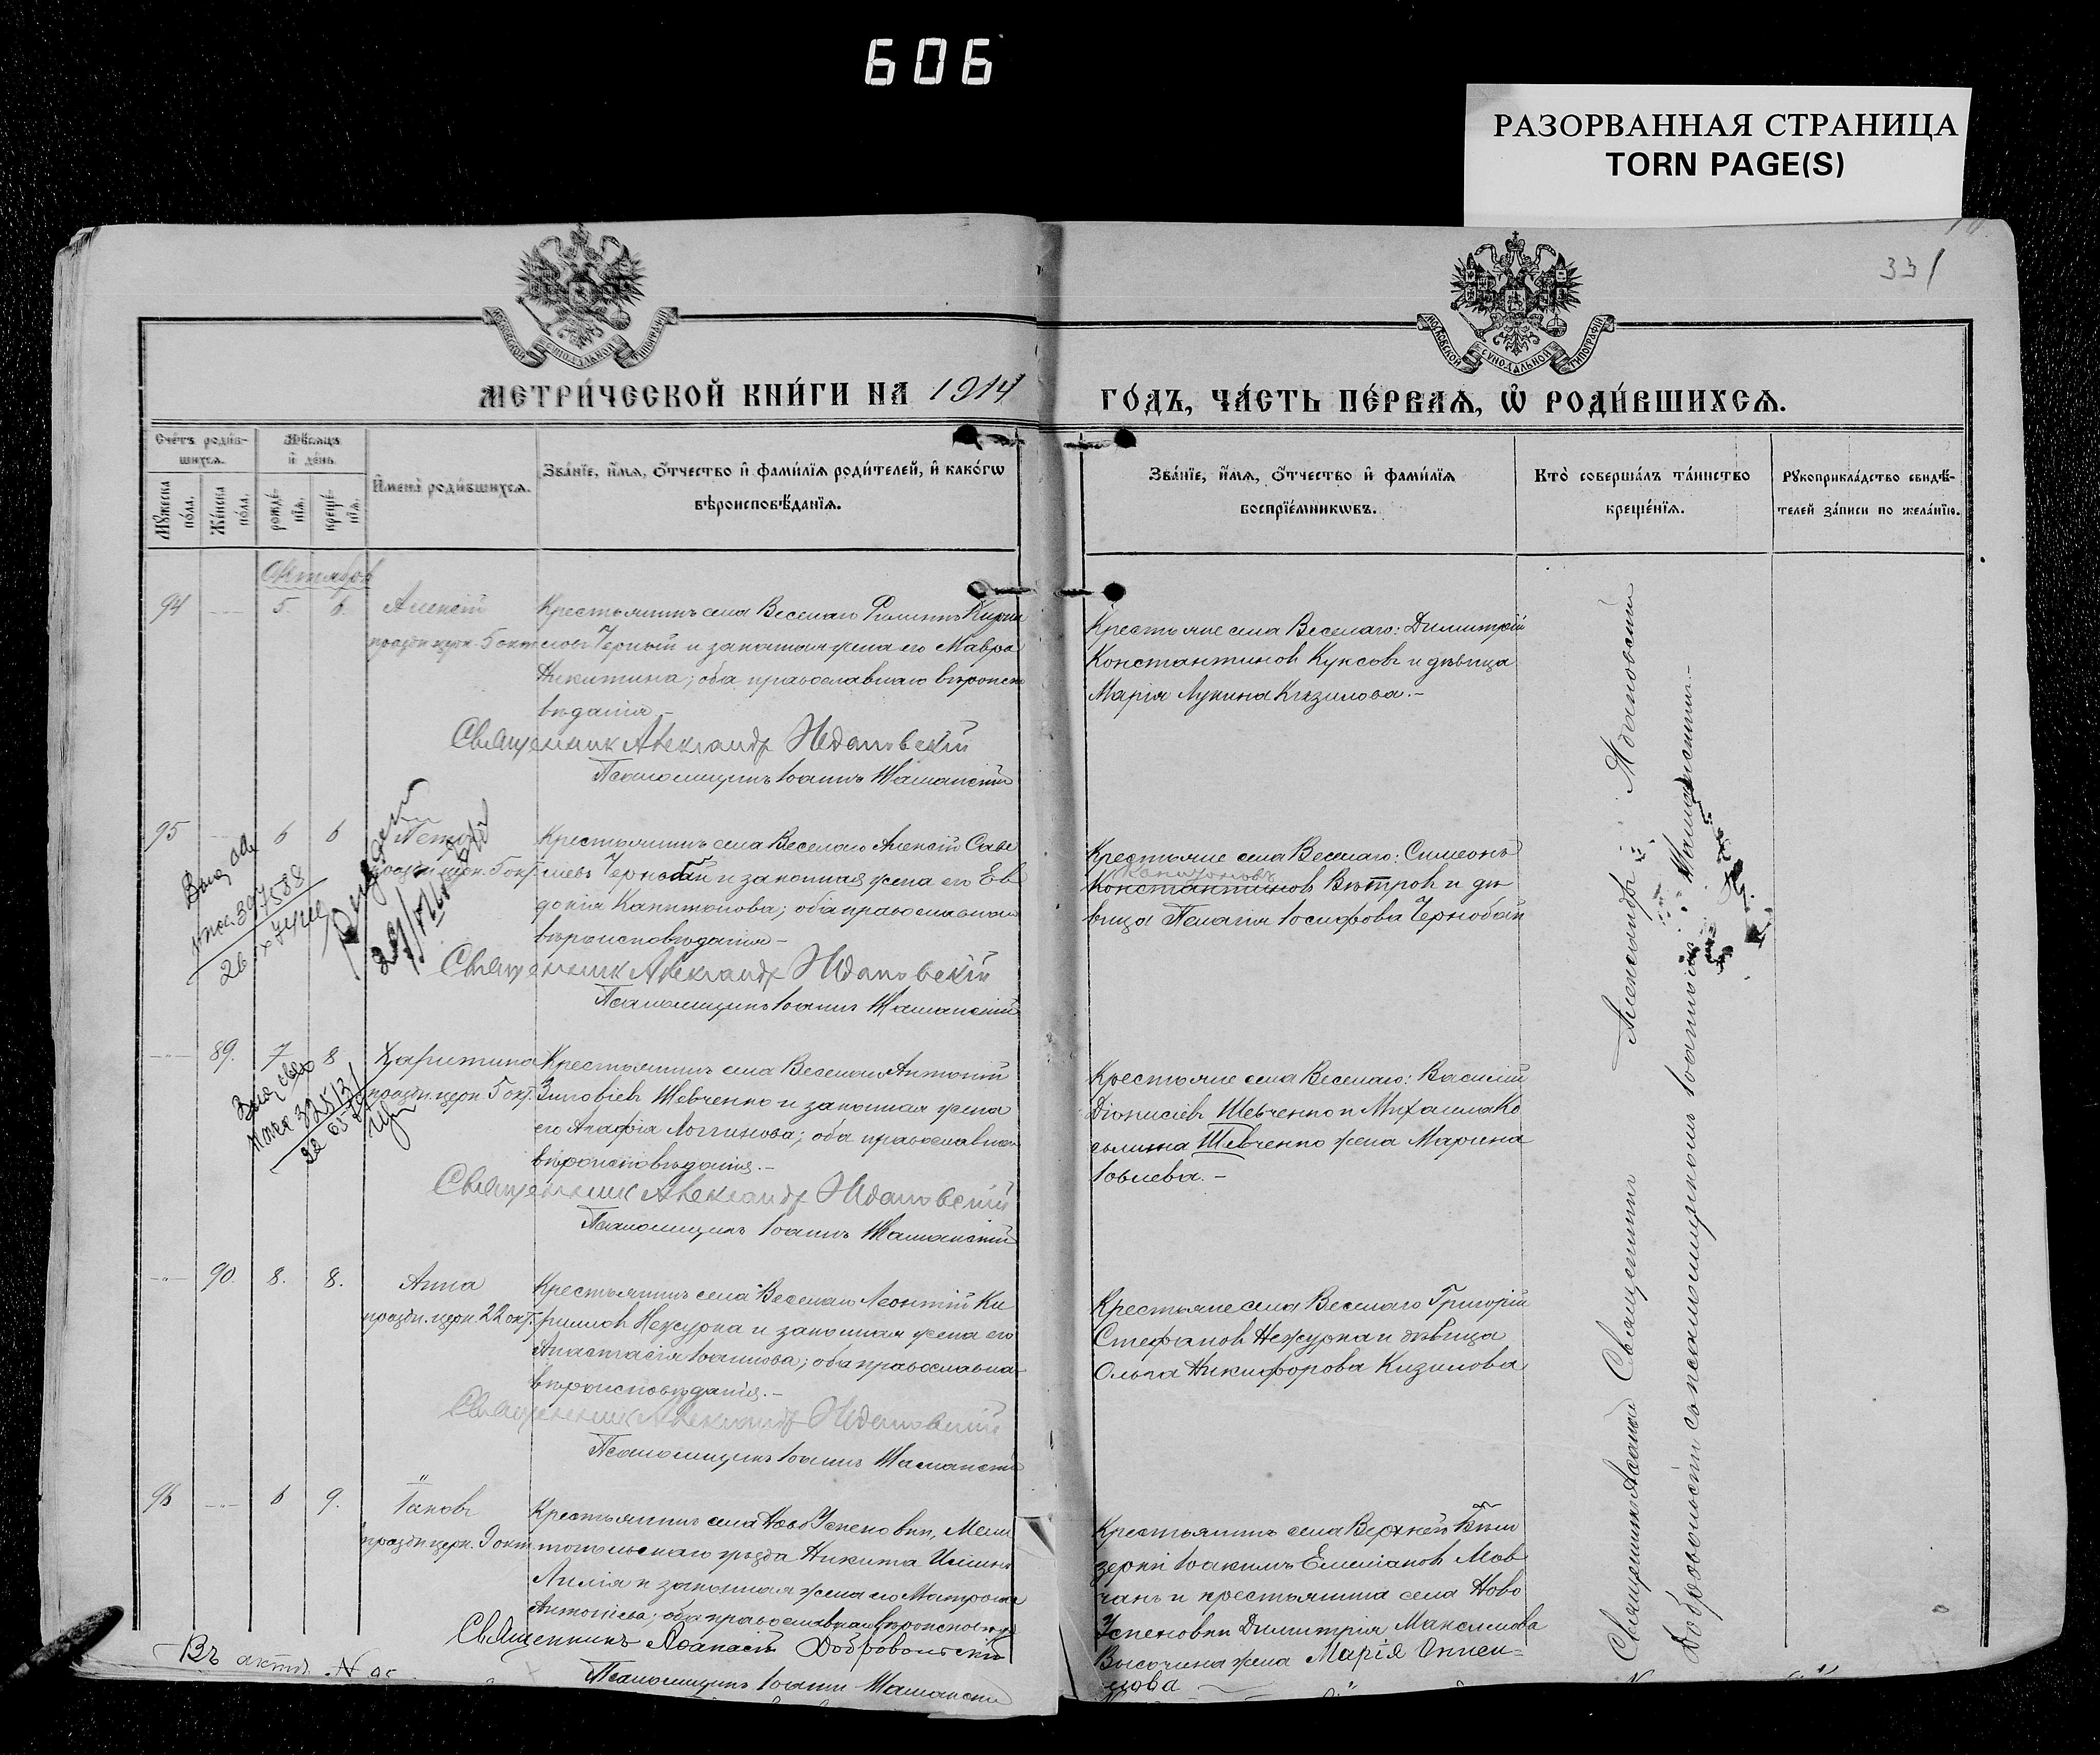 606
РАЗОРВАННАЯ СТРАНИЦА
TORN PAGE(S)
331
МОСКОВСКОЙ СѴНОДАЛЬНОЙ ТИПОГРАФІИ
МОСКОВСКОЙ СѴНОДАЛЬНОЙ ТИПОГРАФІИ
МЕТРИ́ЧЕСКОЙ КНИ́ГИ НА 1914
ГО́ДЪ, ЧА́СТЬ ПЕ́РВАѦ, Ѡ҆ РОДИ́ВШИХСѦ.
Сче́тъ роди́в-
шихсѧ.
Мѣ́сѧцъ
и҆ де́нь.
Мꙋ́жеска
по́ла.
Же́нска
по́ла.
рожде́-
нїѧ.
креще́-
нїѧ.
И҆мена̀ роди́вшихсѧ.
Зва́нїе, и҆́мѧ, ѻ҆́тчество и҆ фами́лїѧ роди́телей, и҆ како́гѡ
вѣроисповѣ́данїѧ.
Зва́нїе, и҆́мѧ, ѻ҆́тчество и҆ фами́лїѧ
воспрїе́мникѡвъ.
Кто̀ соверша́лъ та́инство
креще́нїѧ.
Рꙋкоприкла́дство свидѣ́-
телей за́писи по жела́нїю.
Октябрь
94 5. 6. Алексій
праздн. церк. 5 окт
Крестьянинъ села Веселаго Филиппъ Кирил
ловъ Черный и законная жена его Мавра
Никитина; оба православнаго вѣроиспо
вѣданія
Священник Александр Ждановскій
Псаломщикъ Іоаннъ Шаманскій
Крестьяне села Веселаго: Димитрій
Константиновъ Куксовъ и дѣвица
Марія Лукина Кизилова.-
95 6 6 Петръ
праздн. церк. 5 окт.
Крестьянинъ села Веселаго Алексій Саве
льевъ Черный и законная жена его Ев
докія Капитонова; оба православнаго
вѣроисповѣданія-
Священник Александр Ждановскій
Псаломщикъ Іоаннъ Шаманскій
Крестьяне села Веселаго: Симеонъ
Капитоновъ
Константиновъ Вѣтровъ и дѣ
вица Пелагія Іосифова Чернобай
397588
89. 7 8 Харитина
праздн. церк. 5 окт.
Крестьянинъ села Веселаго Антоній
Зиновіевъ Шевченко и законная жена
его Агафія Логинова; оба православнаго
вѣроисповѣданія.-
Священник Александр Ждановскій
Псаломщикъ Іоаннъ Шаманскій
Крестьяне села Веселаго: Василій
Діонисіевъ Шевченко и Михаила Ко
сьмина Шевченко жена Марина
Іовлева.-
90 8. 8. Анна
праздн. церк. 22 окт.
Крестьянинъ села Веселаго Леонтій Ки
рилловъ Нежурка и законная жена его
Анастасія Іоаннова; оба православнаго
вѣроисповѣданія.-
Священник Александр Ждановскій
Псаломщикъ Іоаннъ Шаманскій
Крестьяне села Веселаго Григорій
Стефановъ Нежурка и дѣвица
Ольга Никифорова Кизилова
96 6 9. Іаковъ
праздн. церк. 9 окт.
Крестьянинъ села Ново Успеновки, Мели
топольскаго уѣзда Никита
и законная жена его Матрона
Антоніева; оба православнаго вѣроисповѣд
Священникъ Аѳанасій Добровольскій
Псаломщикъ Іоаннъ Шаманскій
Крестьянинъ села Верхней Бѣло
зерки Іоакимъ Емеліановъ Мов
чанъ и крестьянина села Ново
Успеновки Димитрія Максимова
Высочина жена Марія
нова
Священникъ Александръ Ждановскій
Священникъ Аѳанасій
Добровольскій съ псаломщикомъ Іоанномъ Шаманскимъ.-
Въ актѣ № 95